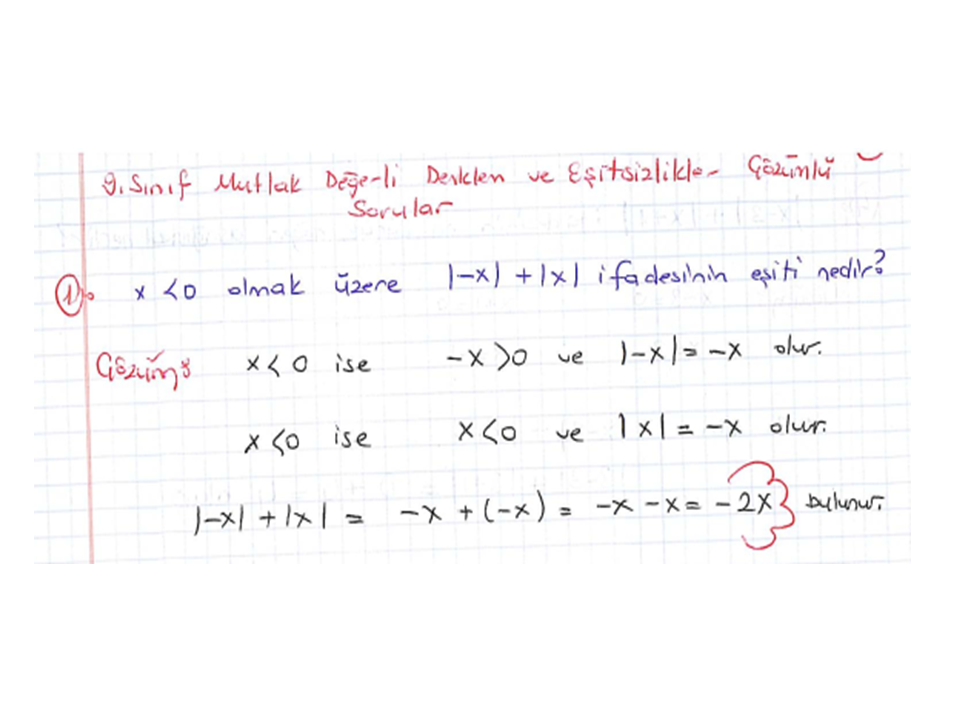 9. Sınıf Mutlak Değerli Denklem ve Eşitsizlikler Çözümlü
Sorular
1. x < 0 olmak üzere |-x| + |x| ifadesinin eşiti nedir?
Çözüm: x < 0 ise -x > 0 ve |-x| = -x olur.
x < 0 ise x < 0 ve |x| = -x olur.
|-x| + |x| = -x + (-x) = -x - x = -2x bulunur.